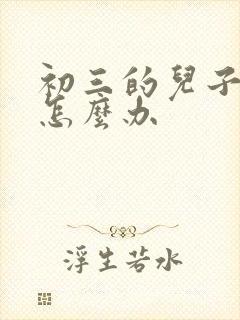 初三的兒子
怎麼办
浮生若水